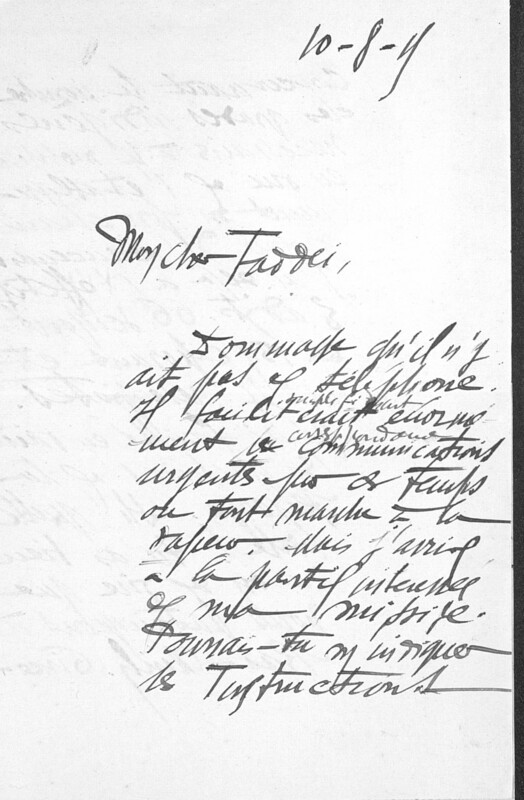 10-8-
Mon cher Taddei,
Dommage qu'il n'y
ait pas de téléphone.
Il faciliterait énormé-
ment les communications
urgentes par ce temps
où tout marche à la
vapeur. Mais j'arrive
à la partie intéressée
de ma missive.
Pourrais-tu m'indiquer
les Instructions